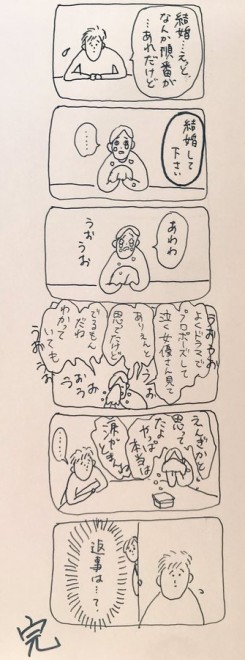 結婚…えと、
なんか順番が
…あれだけど
結婚して
下さい
……
あわわ
うぉ
うぉ
うぉうぉ
よくドラマで
プロポーズして
泣く女優さん見て
ありえんと
思てたけど
でるもん
だね
わかって
いても
うぉうぉ
うぉ
うぉ
えんぎかと
思って
たよ
やっぱ
本当は
涙がでるね
……
返事は…？
完